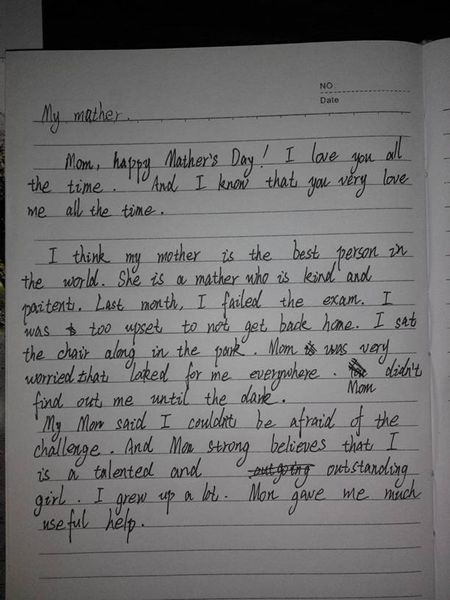 NO
Date
My mather.
Mom, happy Mather's Day! I love you all
the time. And I know that you very love
me all the time.
I think my mother is the best person in
the world. She is a mather who is kind and
paitent. Last month, I failed the exam. I
was too upset to not get back home. I sat
the chair along in the park. Mom is was very
worried that looked for me everywhere. didn't
Mom
find out me until the dark.
My Mom said I couldn't be afraid of the
challenge. And Mom strong believes that I
is a talented and outgoing outstanding
girl. I grew up a lot. Mom gave me much
useful help.